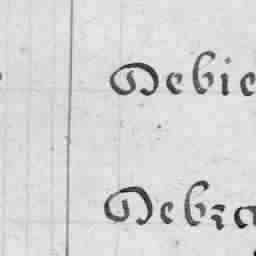 Debie
Debra